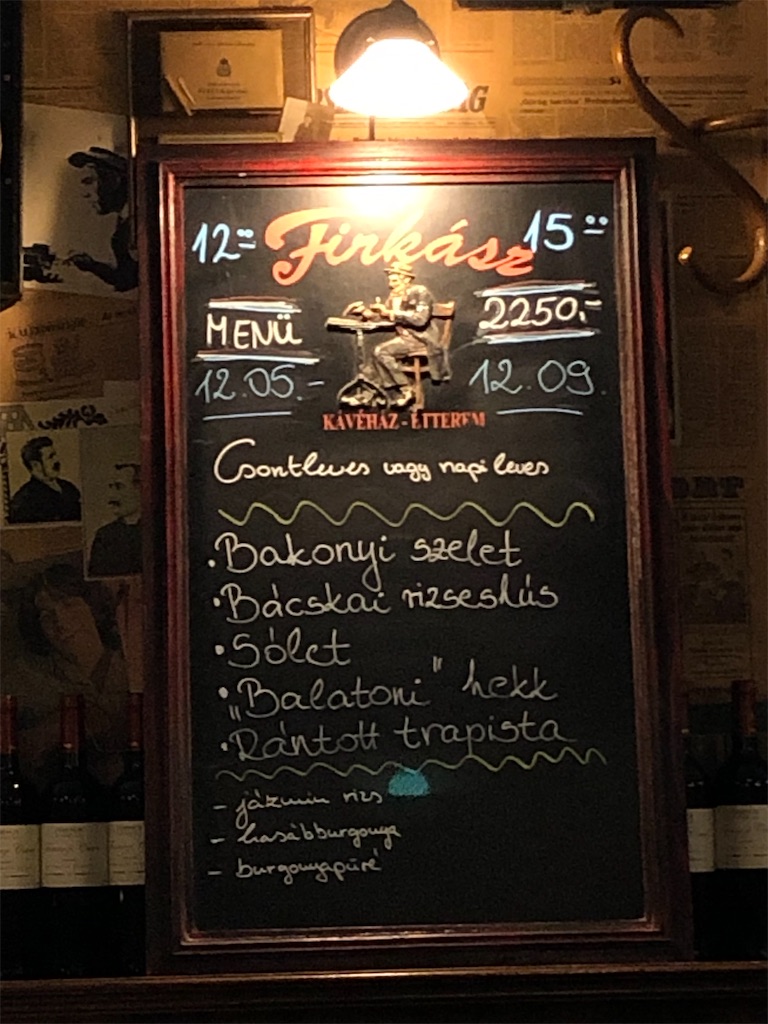 12⁰⁰ Firkász 15⁰⁰
MENÜ 2250.-
12.05.- 12.09.
KÁVÉHÁZ - ÉTTEREM
Csontleves vagy napi leves
•Bakonyi szelet
•Bácskai rizseshús
•Sólet
•„Balatoni" hekk
•Rántott trapista
- jázmin rizs
- hasábburgonya
- burgonyapüré